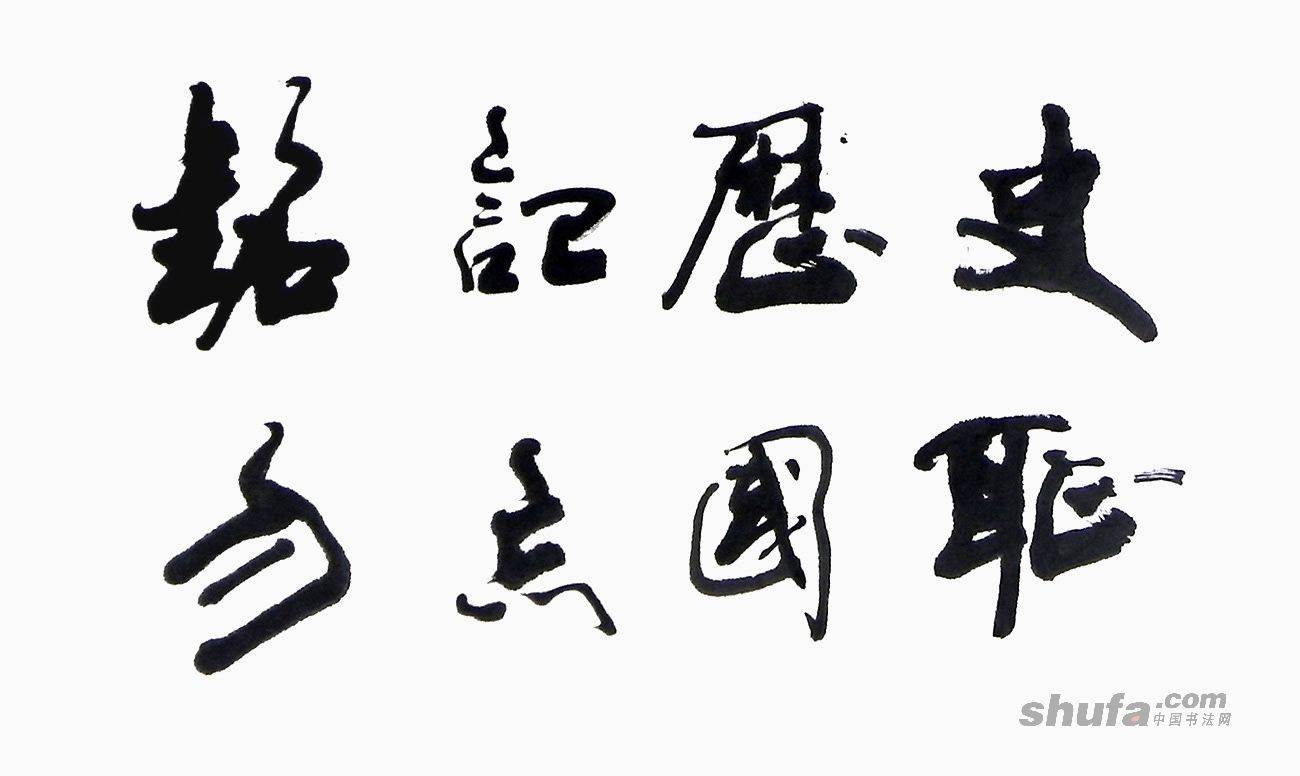 銘記歷史
勿忘國恥
shufa.com
中国书法网